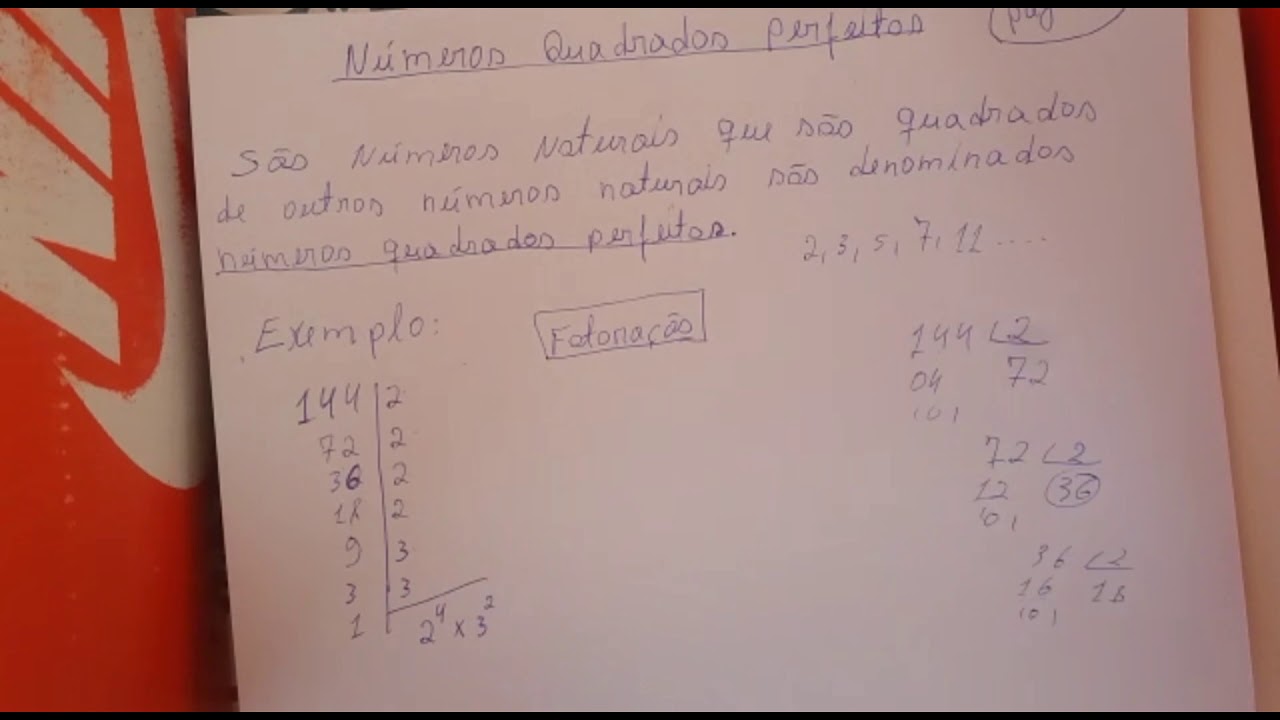 Números Quadrados perfeitos
pág
São Números Naturais que são quadrados
de outros números naturais são denominados
números quadrados perfeitos.
2, 3, 5, 7, 11 ....
Exemplo:
Fatoração
144 | 2
72 | 2
36 | 2
18 | 2
9 | 3
3 | 3
1
2⁴ x 3²
144 2
04 72
(0)
72 2
12 36
(0)
36 2
16 18
(0)